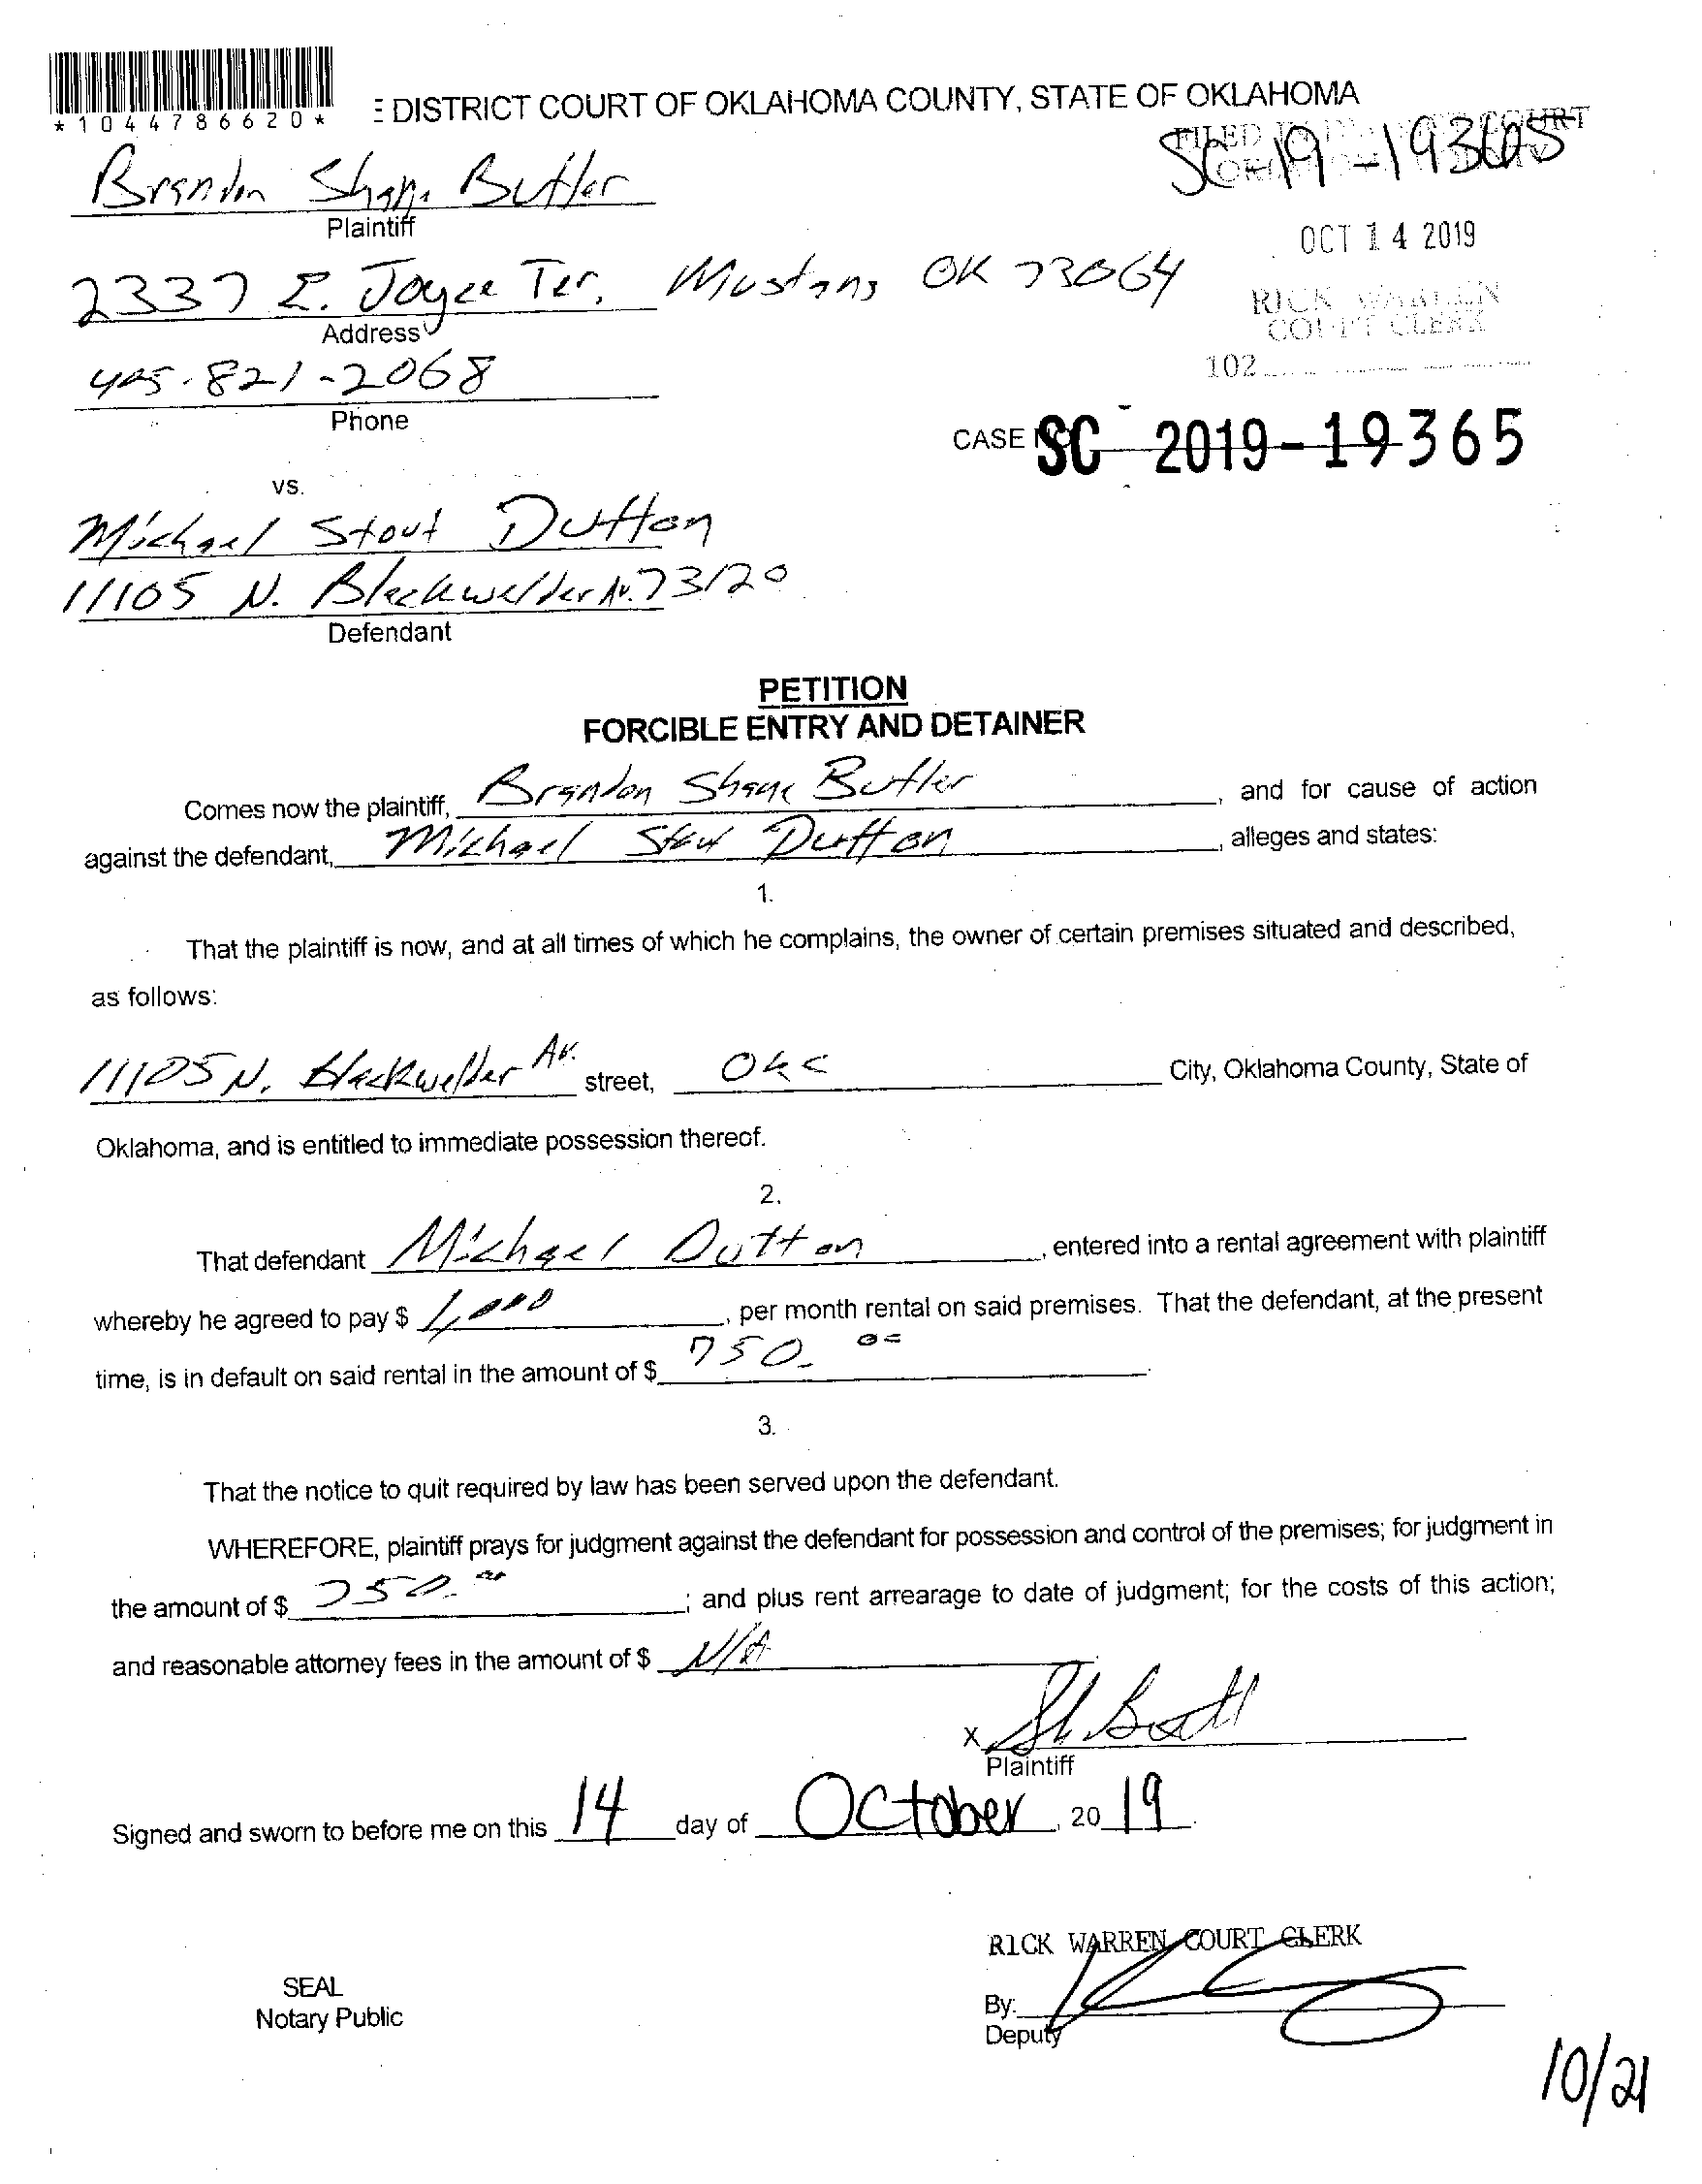 *1044786620*
DISTRICT COURT OF OKLAHOMA COUNTY, STATE OF OKLAHOMA
FILED COURT
SC-19-19365
Brandon Shane Butler
Plaintiff
OCT 14 2019
2337 E. Joyce Ter. Mustang OK 73064
Address
RICK WARREN
COURT CLERK
102
405-821-2068
Phone
CASE SC 2019-19365
vs.
Michael Stout Dutton
11105 N. Blackwelder Av. 73120
Defendant
PETITION
FORCIBLE ENTRY AND DETAINER
Comes now the plaintiff, Brandon Shane Butler, and for cause of action
against the defendant, Michael Stout Dutton, alleges and states:
1.
That the plaintiff is now, and at all times of which he complains, the owner of certain premises situated and described,
as follows:
11105 N. Blackwelder Av. street, OKC City, Oklahoma County, State of
Oklahoma, and is entitled to immediate possession thereof.
2.
That defendant Michael Dutton, entered into a rental agreement with plaintiff
whereby he agreed to pay $ 1,000, per month rental on said premises. That the defendant, at the present
time, is in default on said rental in the amount of $ 750.00.
3.
That the notice to quit required by law has been served upon the defendant.
WHEREFORE, plaintiff prays for judgment against the defendant for possession and control of the premises; for judgment in
the amount of $ 750.00; and plus rent arrearage to date of judgment; for the costs of this action;
and reasonable attorney fees in the amount of $ N/A.
X
Plaintiff
Signed and sworn to before me on this 14 day of October, 2019.
RICK WARREN COURT CLERK
SEAL
Notary Public
By:
Deputy
10/21